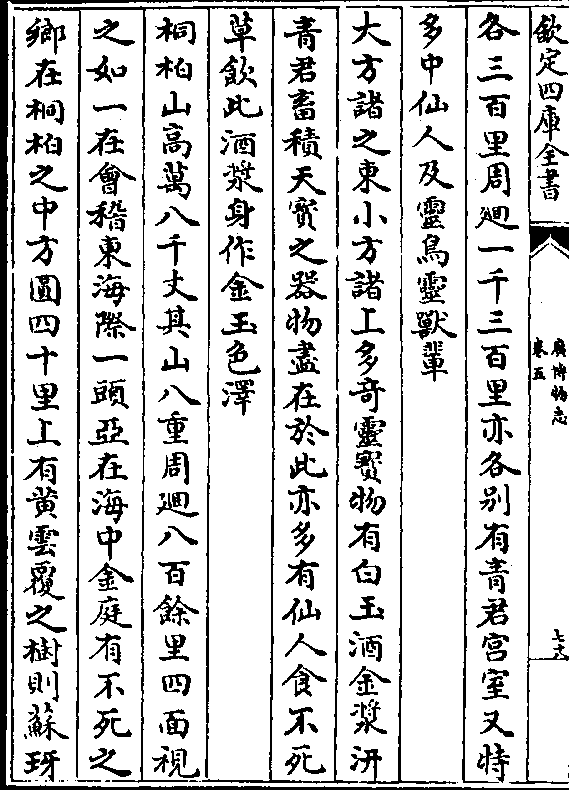 欽定四庫全書
廣博物志
卷五
各三百里周廻一千三百里亦各别有青君宫室又特
多中仙人及靈鳥靈獸輩
大方諸之東小方諸上多奇靈寳物有白玉酒金漿汧
青君畜積天寳之器物盡在於此亦多有仙人食不死
草飲此酒漿身作金玉色澤
桐柏山高萬八千丈其山八重周廻八百餘里四面視
之如一在會稽東海際一頭亞在海中金庭有不死之
鄉在桐柏之中方圓四十里上有黄雲覆之樹則蘇玡